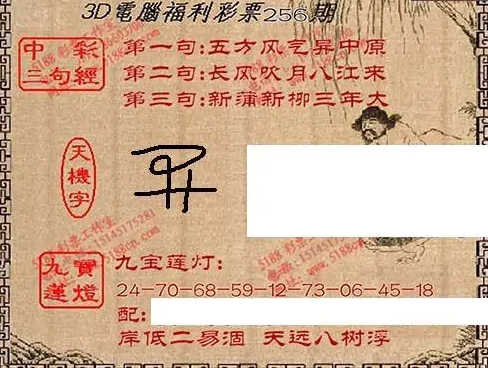 3D電腦福利彩票256期
中彩
三句經
第一句:五方风气异中原
第二句:长风吹月八江来
第三句:新蒲新柳三年大
天機字
九寶蓮燈
九宝莲灯:
24-70-68-59-12-73-06-45-18
配:
岸低二易涸 天远八树浮